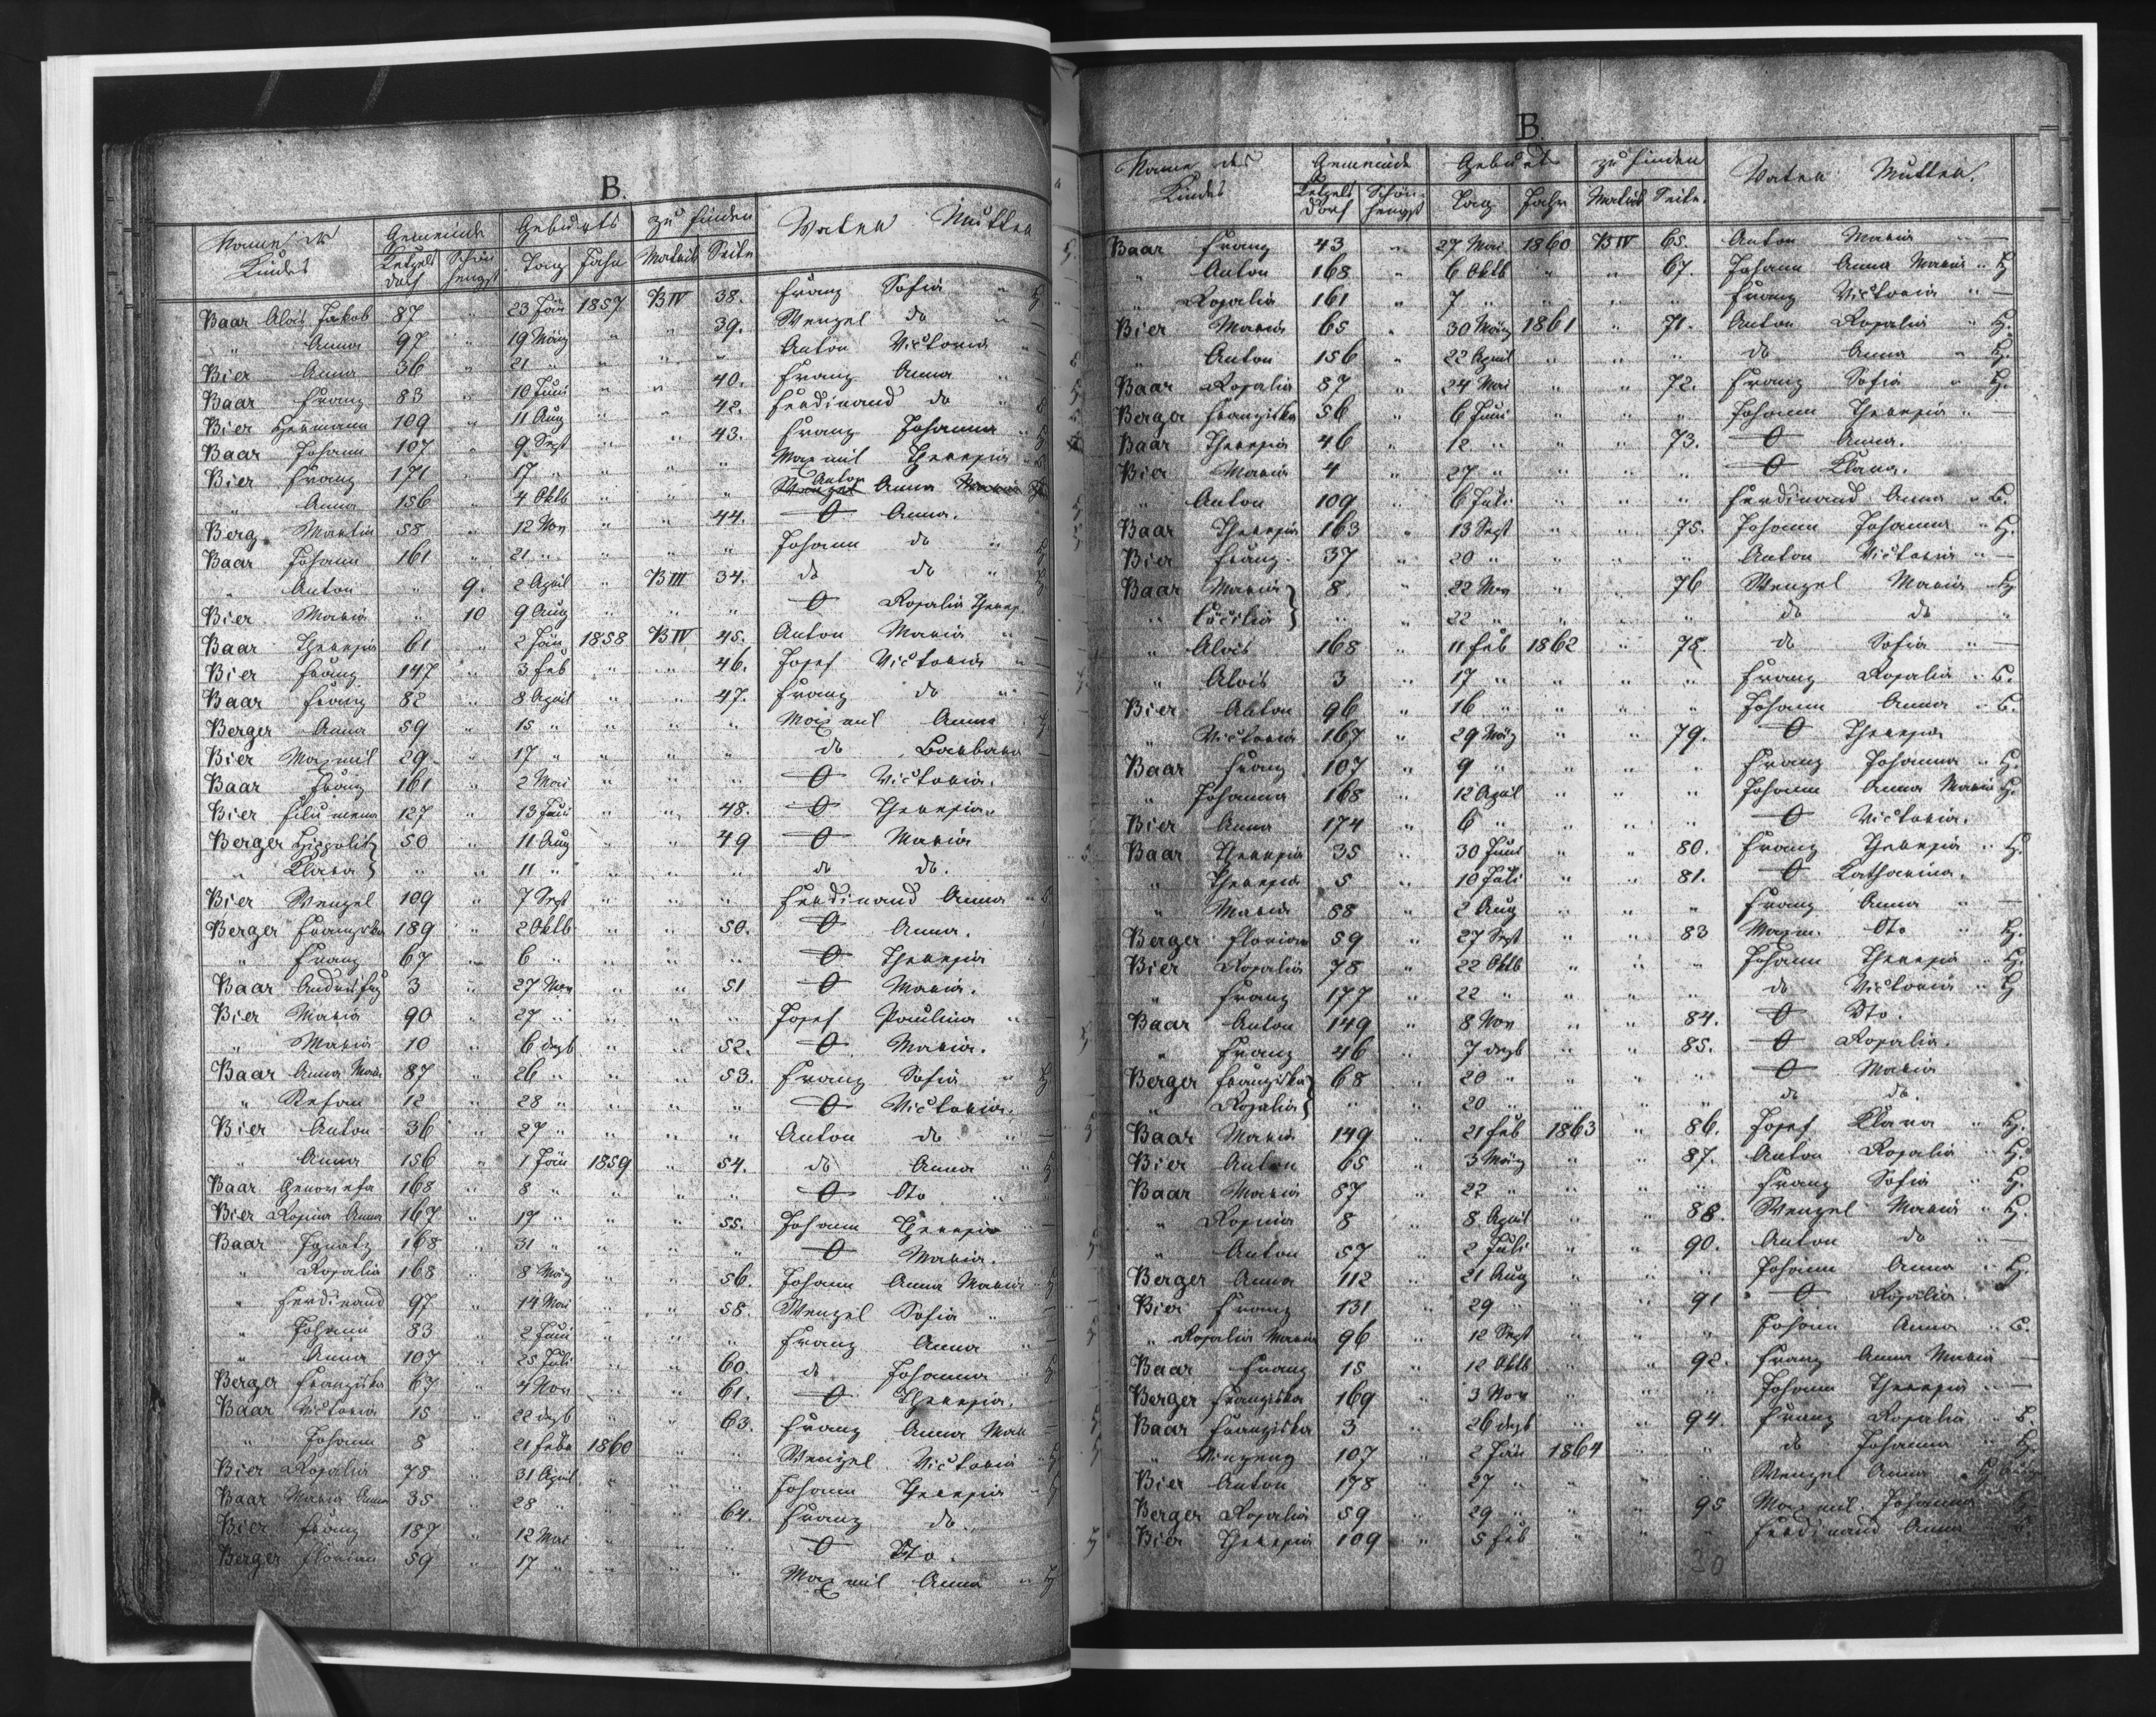 B.
Name des Kindes Gemeinde Geburts zu finden Vater Mutter
Ketzelsdorf Schönhengst Tag Jahr Matrik Seite
Baar Alois Jakob 87 " 23 Jän 1857 B IV 38. Franz Sofia "
" Anna 97 " 19 März " " 39. Wenzel do " —
Bier Anna 36 " 21 " " " " Anton Victoria " —
Baar Franz 83 " 10 Juni " " 40. Franz Anna " —
Bier Hermann 109 " 11 Aug " " 42. Ferdinand do " B
Baar Johann 107 " 9 Sept " " 43. Franz Johanna "
Bier Franz 171 " 17 " " " " Maxmil Theresia " B
" Anna 156 " 4 Oktb " " " Anton Anna
Berg. Martin 58 " 12 Nov " " 44. O Anna.
Baar Johann 161 " 21 " " " " Johann do "
" Anton " 9. 2 April " B III 34. do do "
Bier Maria " 10 9 Aug " " " O Rosalia Theres.
Baar Theresia 61 " 2 Jän 1858 B IV 45. Anton Maria " —
Bier Franz 147 " 3 Feb " " 46. Josef Victoria " —
Baar Franz 82 " 8 April " " 47. Franz do " —
Berger Anna 59 " 15 " " " " Maxmil Anna "
Bier Maxmil 29 " 17 " " " " do Barbara —
Baar Franz 161 " 2 Mai " " " O Victoria.
Bier Filumena 127 " 13 Juni " " 48. O Theresia.
Berger Hippolit 50 " 11 Aug " " 49 O Maria
" Klara " " 11 " " " " do do.
Bier Wenzel 109 " 7 Sept " " " Ferdinand Anna " B.
Berger Franziska 189 " 2 Oktb " " 50. O Anna.
" Franz 67 " 6 " " " " O Theresia
Baar 3 " 27 Nov " " 51 O Maria.
Bier Maria 90 " 27 " " " " Josef Paulina " —
" Maria 10 " 6 dezb " " 52. O Maria.
Baar Anna Maria 87 " 26 " " " 53. Franz Sofia "
" Stefan 12 " 28 " " " " O Victoria.
Bier Anton 36 " 27 " " " " Anton do " —
" Anna 156 " 1 Jän 1859 " 54. do Anna "
Baar Genovefa 168 " 8 " " " " O Dto "
Bier Rosina Anna 167 " 17 " " " 55. Johann Theresia —
Baar Ignatz 168 " 31 " " " " O Maria.
" Rosalia 168 " 8 März " " 56. Johann Anna Maria "
" Ferdinand 97 " 14 Mai " " 58. Wenzel Sofia " —
" Johann 83 " 2 Juni " " " Franz Anna "
" Anna 107 " 25 Juli " " 60. do Johanna "
Berger Franziska 67 " 4 Nov " " 61. O Theresia.
Baar Victoria 15 " 22 dezb " " 63. Franz Anna Mar —
" Johann 8 " 21 Feb 1860 " " Wenzel Victoria "
Bier Rosalia 78 " 31 April " " " Johann Theresia "
Baar Maria Anna 35 " 28 " " " 64. Franz do.
Bier Franz 187 " 12 Mai " " " O Dto.
Berger Florian 59 " 17 " " " " Maxmil Anna "
B.
Name des Kindes Gemeinde Geburts zu finden Vater Mutter.
Ketzelsdorf Schönhengst Tag Jahr Matrik Seite.
Baar Franz 43 " 27 Mai 1860 B IV 65. Anton Maria " —
" Anton 168 " 6 Oktb " " 67. Johann Anna Maria " H
" Rosalia 161 " 7 " " " " Franz Victoria " —
Bier Maria 65 " 30 März 1861 " 71. Anton Rosalia " H.
" Anton 156 " 22 April " " " do Anna " H.
Baar Rosalia 87 " 24 Mai " " 72. Franz Sofia " H.
Berger Franziska 56 " 6 Juni " " " Johann Theresia " —
Baar Theresia 46 " 12 " " " 73. O Anna.
Bier Maria 4 " 27 " " " " O Klara.
" Anton 109 " 6 Juli " " " Ferdinand Anna " B.
Baar Theresia 163 " 13 Sept " " 75. Johann Johanna " H.
Bier Franz 37 " 20 " " " " Anton Victoria " —
Baar Maria 8. " 22 Nov " " 76 Wenzel Maria " H
" Cäcilia " " 22 " " " " do do "
" Alois 168 " 11 Feb 1862 " 78. do Sofia " —
" Alois 3 " 17 " " " " Franz Rosalia " B.
Bier Anton 96 " 16 " " " " Johann Anna " B.
" Victoria 167 " 29 März " " 79. O Theresia
Baar Franz 107 " 9 " " " " Franz Johanna " H.
" Johanna 168 " 12 April " " " Johann Anna Maria H.
Bier Anna 174 " 6 " " " " O Victoria.
Baar Theresia 35 " 30 Juni " " 80. Franz Theresia " H.
" Theresia 5 " 10 Juli " " 81. O Katharina.
" Maria 88 " 2 Aug " " " Franz Anna " —
Berger Florian 59 " 27 Sept " " 83 Maxm. Dto " H.
Bier Rosalia 78 " 22 Oktb " " " Johann Theresia " H.
" Franz 177 " 22 " " " " do Victoria " H
Baar Anton 149 " 8 Nov " " 84. O Dto.
" Franz 46 " 7 dezb " " 85. O Rosalia.
Berger Franziska 68 " 20 " " " " O Maria
" Rosalia " " 20 " " " " do do.
Baar Maria 149 " 21 Feb 1863 " 86. Josef Klara " H.
Bier Anton 65 " 3 März " " 87. Anton Rosalia " H.
Baar Maria 87 " 22 " " " " Franz Sofia " H.
" Rosina 8 " 8 April " " 88. Wenzel Maria " H.
" Anton 57 " 2 Juli " " 90. Anton do " —
Berger Anna 112 " 21 Aug " " " Johann Anna " H.
Bier Franz 131 " 29 " " " 91 O Rosalia.
" Rosalia Maria 96 " 12 Sept " " " Johann Anna " B.
Baar Franz 15 " 12 Oktb " " 92. Franz Anna Maria —
Berger Franziska 169 " 3 Nov " " " Johann Theresia " —
Baar Franziska 3 " 26 dezb " " 94. Franz Rosalia " B.
" Vinzenz 107 " 2 Jän 1864 " " do Johanna " H.
Bier Anton 178 " 27 " " " " Wenzel Anna
Berger Rosalia 59 " 29 " " " 95 Maxmil. Johanna H.
Bier Theresia 109 " 5 Feb " " " Ferdinand Anna B.
30